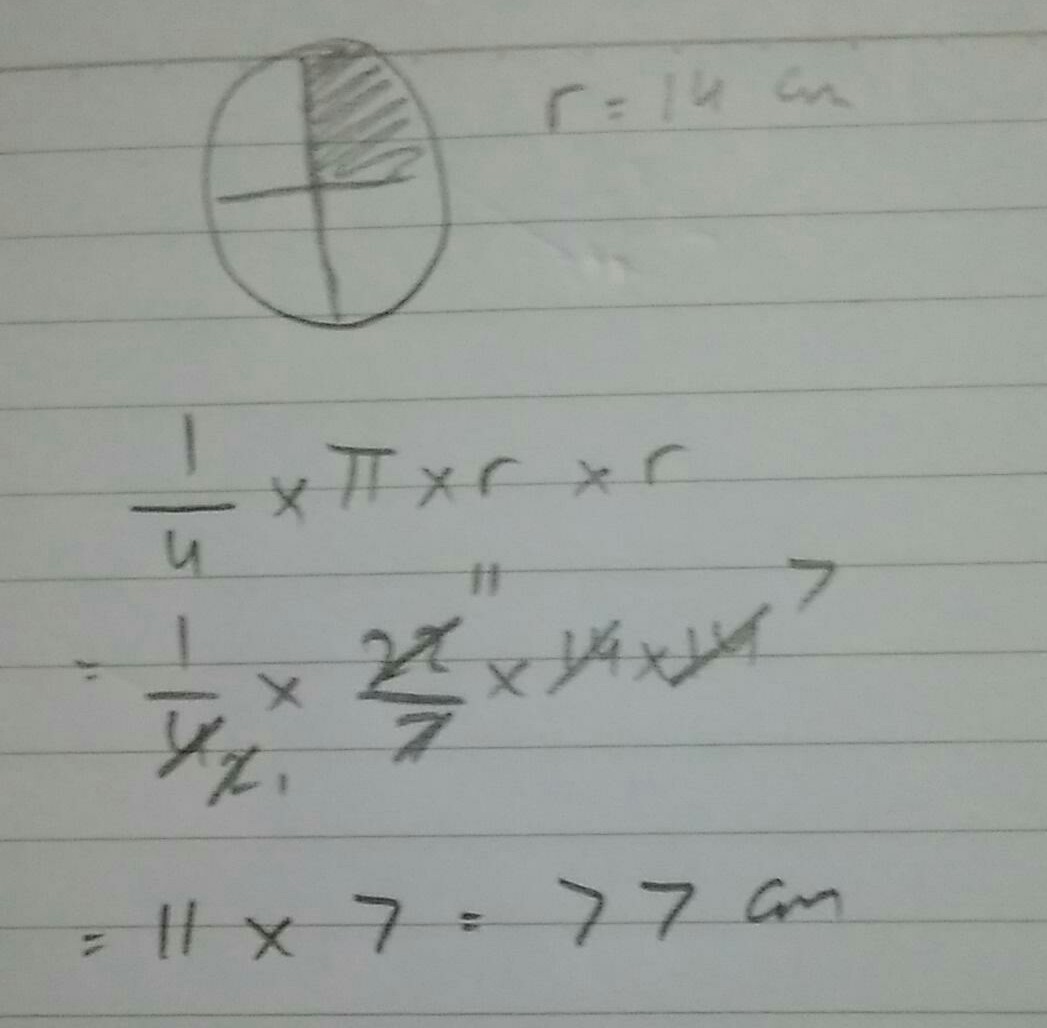 r = 14 cm
1/4 × π × r × r
= 1/4 2 1 × 22/7 11 × 14 × 14 7
= 11 × 7 = 77 cm